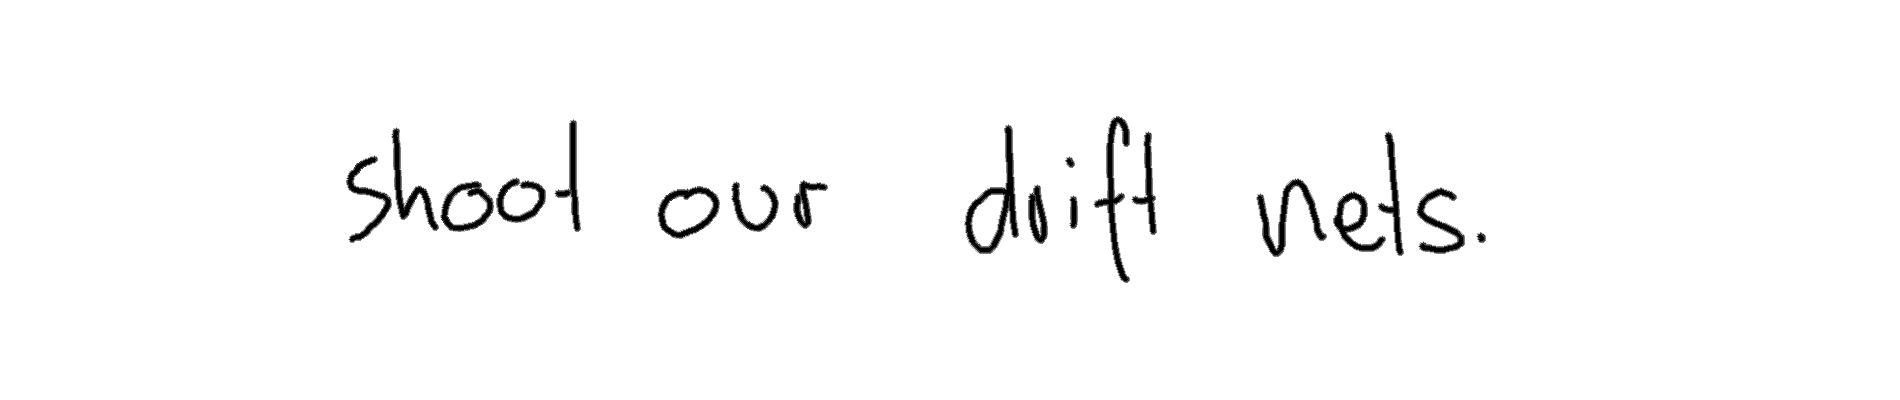 shoot our drift nets.